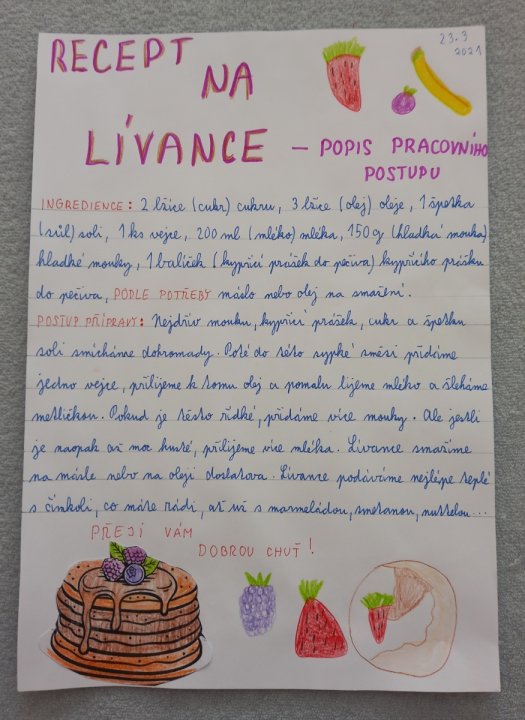 23.3
2021
RECEPT
NA
LÍVANCE – POPIS PRACOVNÍHO
POSTUPU
INGREDIENCE: 2 lžíce (cukr) cukru, 3 lžíce (olej) oleje, 1 špetka
(sůl) soli, 1 ks vejce, 200 ml (mléko) mléka, 150 g (hladká mouka)
hladké mouky, 1 balíček (kypřící prášek do pečiva) kypřícího prášku
do pečiva, PODLE POTŘEBY máslo nebo olej na smažení.
POSTUP PŘÍPRAVY: Nejdřív mouku, kypřící prášek, cukr a špetku
soli smícháme dohromady. Poté do této sypké směsi přidáme
jedno vejce, přilijeme k tomu olej a pomalu lijeme mléko a šleháme
metličkou. Pokud je těsto řídké, přidáme více mouky. Ale jestli
je naopak až moc husté, přilijeme více mléka. Lívance smažíme
na másle nebo na oleji dozlatova. Lívance podáváme nejlépe teplé
s čímkoli, co máte rádi, ať už s marmeládou, smetanou, nuttelou...
PŘEJI VÁM
DOBROU CHUŤ!